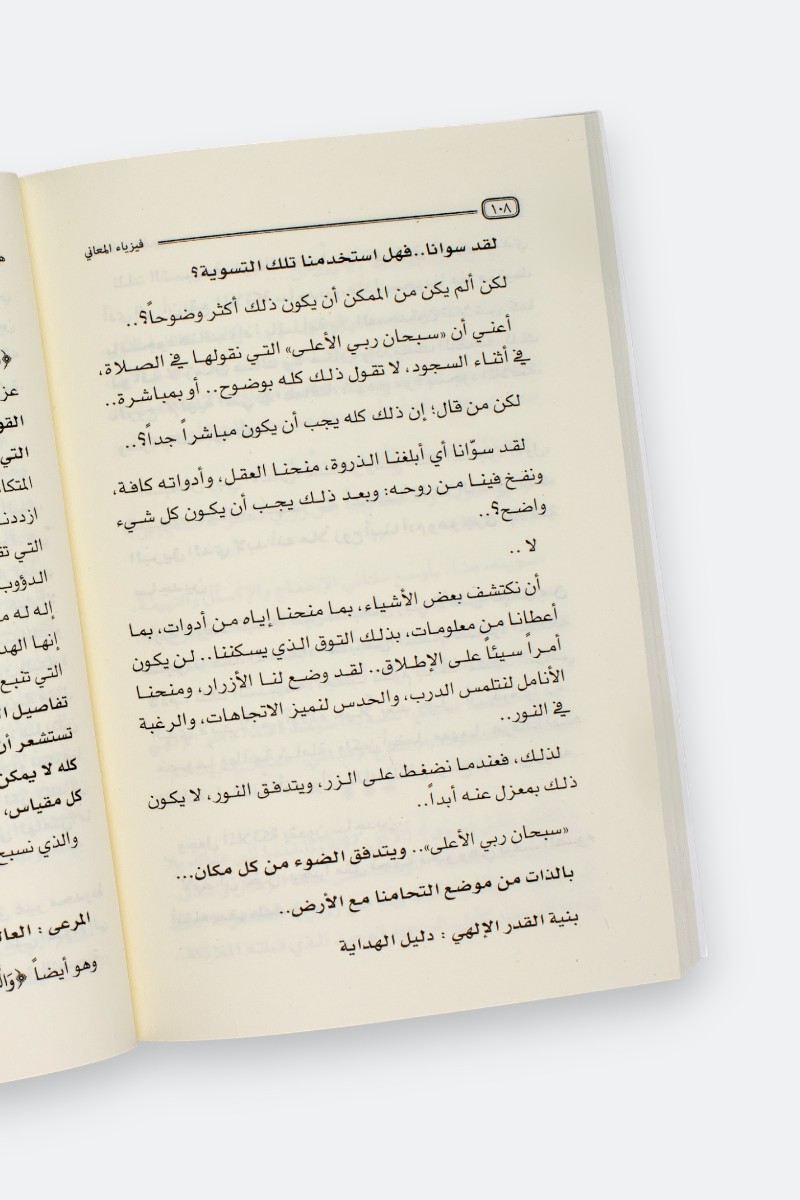 ١٠٨
فيزياء المعاني
لقد سوانا..فهل استخدمنا تلك التسوية؟
لكن ألم يكن من الممكن أن يكون ذلك أكثر وضوحاً؟..
أعني أن «سبحان ربي الأعلى» التي نقولها في الصلاة،
في أثناء السجود، لا تقول ذلك كله بوضوح.. أو بمباشرة..
لكن من قال؛ إن ذلك كله يجب أن يكون مباشراً جداً؟..
لقد سوّانا أي أبلغنا الذروة، منحنا العقل، وأدواته كافة،
ونفخ فينا من روحه: وبعد ذلك يجب أن يكون كل شيء
واضح؟..
لا ..
أن نكتشف بعض الأشياء، بما منحنا إياه من أدوات، بما
أعطانا من معلومات، بذلك التوق الذي يسكننا.. لن يكون
أمراً سيئاً على الإطلاق.. لقد وضع لنا الأزرار، ومنحنا
الأنامل لنتلمس الدرب، والحدس لنميز الاتجاهات، والرغبة
في النور..
لذلك، فعندما نضغط على الزر، ويتدفق النور، لا يكون
ذلك بمعزل عنه أبداً..
«سبحان ربي الأعلى».. ويتدفق الضوء من كل مكان...
بالذات من موضع التحامنا مع الأرض..
بنية القدر الإلهي : دليل الهداية
عز
التي
إله له
إنها
التي تنبع
تستشعر أن
كله لا يمكن
كل مقياس،
والذي نسبح
المرعى :
وهو أيضاً